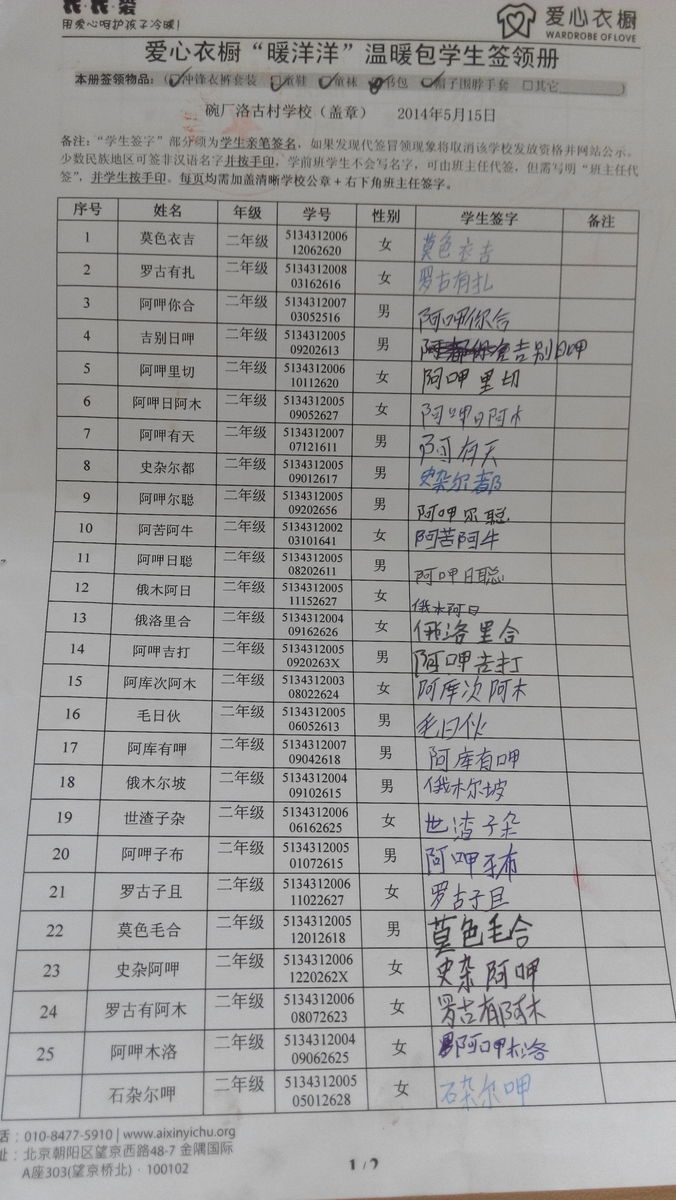 用爱心呵护孩子冷暖!
爱心衣橱
WARDROBE OF LOVE
爱心衣橱“暖洋洋”温暖包学生签领册
本册签领物品:(☑冲锋衣裤套装 ☑童鞋 ☑童袜 ☑书包 ☑帽子围脖手套 □其它 )
碗厂洛古村学校(盖章) 2014年5月15日
备注:“学生签字”部分须为学生亲笔签名,如果发现代签冒领现象将取消该学校发放资格并网站公示。
少数民族地区可签非汉语名字并按手印,学前班学生不会写名字,可由班主任代签,但需写明“班主任代
签”,并学生按手印。每页均需加盖清晰学校公章+右下角班主任签字。
序号 姓名 年级 学号 性别 学生签字 备注
1 莫色衣吉 二年级 513431200612062620 女 莫色衣吉
2 罗古有扎 二年级 513431200803162616 女 罗古有扎
3 阿呷你合 二年级 513431200703052516 男 阿呷你合
4 吉别日呷 二年级 513431200509202613 男 吉别日呷
5 阿呷里切 二年级 513431200610112620 女 阿呷里切
6 阿呷日阿木 二年级 513431200509052627 女 阿呷日阿木
7 阿呷有天 二年级 513431200707121611 男 阿有天
8 史杂尔都 二年级 513431200509012617 男 史杂尔都
9 阿呷尔聪 二年级 513431200509202656 男 阿呷尔聪
10 阿苦阿牛 二年级 513431200203101641 女 阿苦阿牛
11 阿呷日聪 二年级 513431200508202611 男 阿呷日聪
12 俄木阿日 二年级 513431200511152627 女 俄木阿日
13 俄洛里合 二年级 513431200409162626 女 俄洛里合
14 阿呷吉打 二年级 51343120050920263X 男 阿呷吉打
15 阿库次阿木 二年级 513431200308022624 女 阿库次阿木
16 毛日伙 二年级 513431200506052613 男 毛日伙
17 阿库有呷 二年级 513431200709042618 男 阿库有呷
18 俄木尔坡 二年级 513431200409102615 男 俄木尔坡
19 世渣子杂 二年级 513431200606162625 女 世渣子杂
20 阿呷子布 二年级 513431200501072615 男 阿呷子布
21 罗古子且 二年级 513431200611022627 女 罗古子且
22 莫色毛合 二年级 513431200512012618 男 莫色毛合
23 史杂阿呷 二年级 51343120061220262X 女 史杂阿呷
24 罗古有阿木 二年级 513431200608072623 女 罗古有阿木
25 阿呷木洛 二年级 513431200409062625 女 阿呷木洛
石杂尔呷 二年级 513431200505012628 女 石杂尔呷
话:010-8477-5910 | www.aixinyichu.org
址:北京朝阳区望京西路48-7 金隅国际
A座303(望京桥北)·100102
1/2